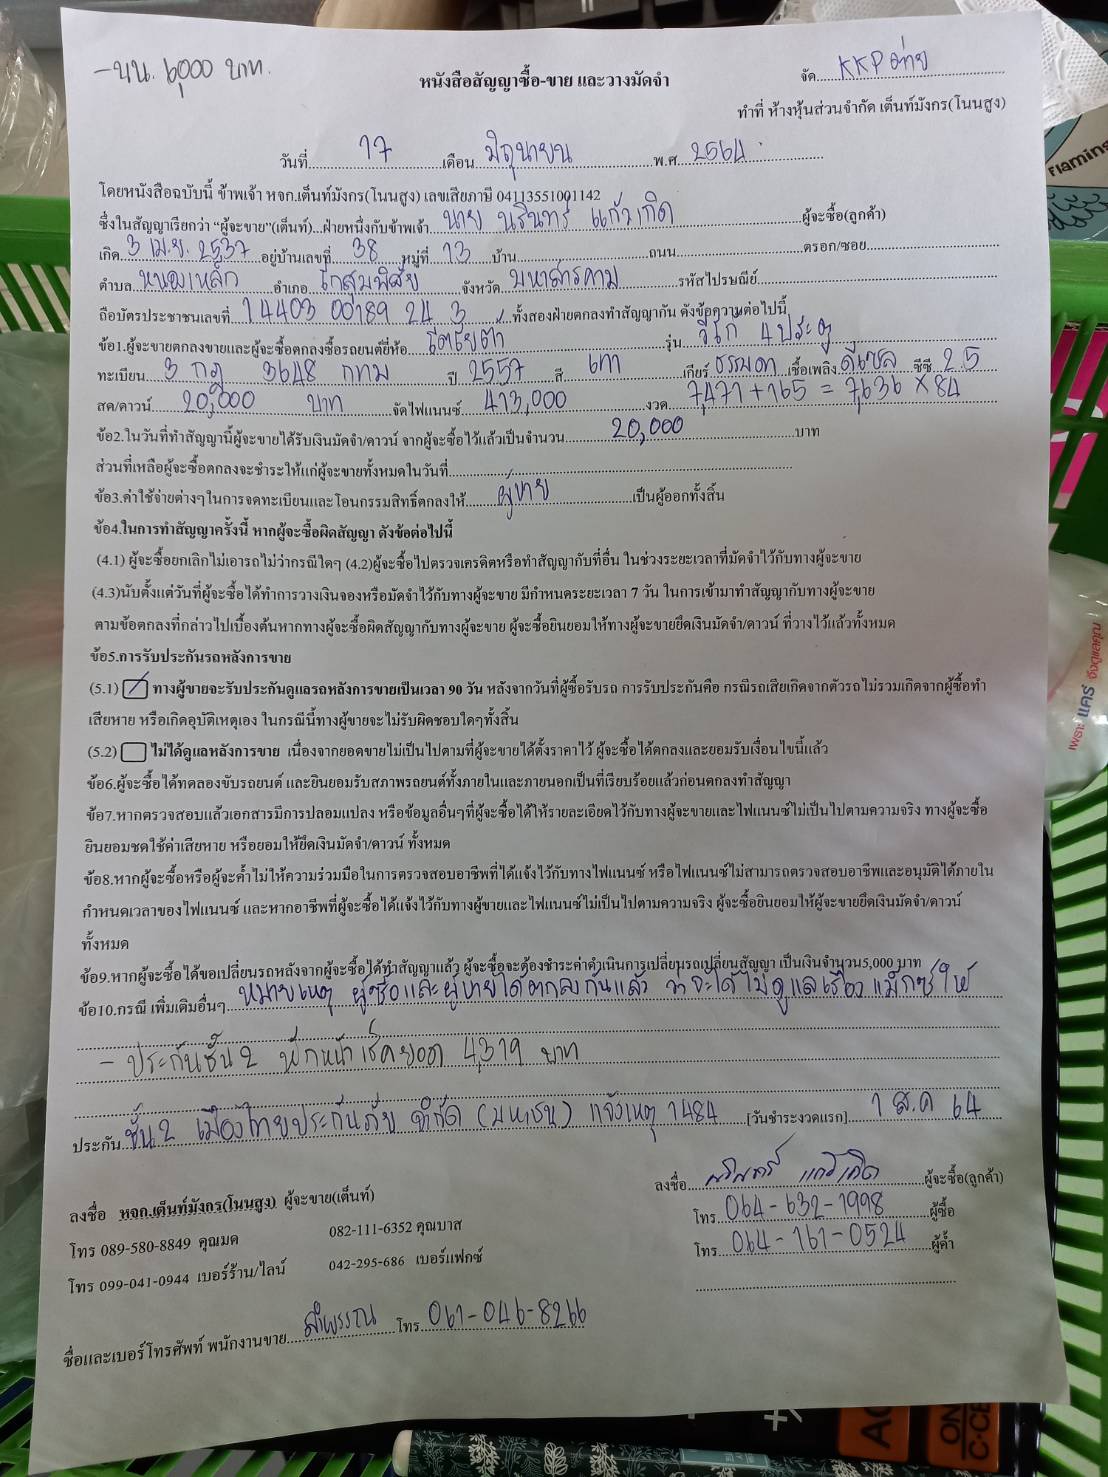 -นน. 6,000 บาท.
หนังสือสัญญาซื้อ-ขาย และวางมัดจำ
จัด KKP
ทำที่ ห้างหุ้นส่วนจำกัด เต็นท์มังกร(โนนสูง)
วันที่ 17 เดือน มิถุนายน พ.ศ. 2564
โดยหนังสือฉบับนี้ ข้าพเจ้า หจก.เต็นท์มังกร(โนนสูง) เลขเสียภาษี 04113551001142
ซึ่งในสัญญาเรียกว่า "ผู้จะขาย"(เต็นท์)...ฝ่ายหนึ่งกับข้าพเจ้า นาย นรินทร์ แก้วเกิด ผู้จะซื้อ(ลูกค้า)
เกิด 3 เม.ย. 2537 อยู่บ้านเลขที่ 38 หมู่ที่ 13 บ้าน ถนน ตรอก/ซอย
ตำบล หนองเหล็ก อำเภอ โกสุมพิสัย จังหวัด มหาสารคาม รหัสไปรษณีย์
ถือบัตรประชาชนเลขที่ 14403 00189 24 3 ทั้งสองฝ่ายตกลงทำสัญญากัน ดังข้อความต่อไปนี้
ข้อ1.ผู้จะขายตกลงขายและผู้จะซื้อตกลงซื้อรถยนต์ยี่ห้อ โตโยต้า รุ่น วีโก้ 4 ประตู
ทะเบียน 3 กฎ 3648 กทม ปี 2557 สี เทา เกียร์ ธรรมดา เชื้อเพลิง ดีเซล ซีซี 2.5
สด/ดาวน์ 20,000 บาท จัดไฟแนนซ์ 413,000 งวด 7,471+165 = 7,636 × 84
ข้อ2.ในวันที่ทำสัญญานี้ผู้จะขายได้รับเงินมัดจำ/ดาวน์ จากผู้จะซื้อไว้แล้วเป็นจำนวน 20,000 บาท
ส่วนที่เหลือผู้จะซื้อตกลงจะชำระให้แก่ผู้จะขายทั้งหมดในวันที่
ข้อ3.ค่าใช้จ่ายต่างๆในการจดทะเบียนและโอนกรรมสิทธิ์ตกลงให้ ผู้ขาย เป็นผู้ออกทั้งสิ้น
ข้อ4.ในการทำสัญญาครั้งนี้ หากผู้จะซื้อผิดสัญญา ดังข้อต่อไปนี้
(4.1) ผู้จะซื้อยกเลิกไม่เอารถไม่ว่ากรณีใดๆ (4.2)ผู้จะซื้อไปตรวจเครดิตหรือทำสัญญากับที่อื่น ในช่วงระยะเวลาที่มัดจำไว้กับทางผู้จะขาย
(4.3)นับตั้งแต่วันที่ผู้จะซื้อได้ทำการวางเงินจองหรือมัดจำไว้กับทางผู้จะขาย มีกำหนดระยะเวลา 7 วัน ในการเข้ามาทำสัญญากับทางผู้จะขาย
ตามข้อตกลงที่กล่าวไปเบื้องต้นหากทางผู้จะซื้อผิดสัญญากับทางผู้จะขาย ผู้จะซื้อยินยอมให้ทางผู้จะขายยึดเงินมัดจำ/ดาวน์ ที่วางไว้แล้วทั้งหมด
ข้อ5.การรับประกันรถหลังการขาย
(5.1) ทางผู้ขายจะรับประกันดูแลรถหลังการขายเป็นเวลา 90 วัน หลังจากวันที่ผู้ซื้อรับรถ การรับประกันคือ กรณีรถเสียเกิดจากตัวรถ ไม่รวมเกิดจากผู้ซื้อทำ
เสียหาย หรือเกิดอุบัติเหตุเอง ในกรณีนี้ทางผู้ขายจะไม่รับผิดชอบใดๆทั้งสิ้น
(5.2) ไม่ได้ดูแลหลังการขาย เนื่องจากยอดขายไม่เป็นไปตามที่ผู้จะขายได้ตั้งราคาไว้ ผู้จะซื้อได้ตกลงและยอมรับเงื่อนไขนี้แล้ว
ข้อ6.ผู้จะซื้อได้ทดลองขับรถยนต์ และยินยอมรับสภาพรถยนต์ทั้งภายในและภายนอกเป็นที่เรียบร้อยแล้วก่อนตกลงทำสัญญา
ข้อ7.หากตรวจสอบแล้วเอกสารมีการปลอมแปลง หรือข้อมูลอื่นๆที่ผู้จะซื้อได้ให้รายละเอียดไว้กับทางผู้จะขายและไฟแนนซ์ไม่เป็นไปตามความจริง ทางผู้จะซื้อ
ยินยอมชดใช้ค่าเสียหาย หรือยอมให้ยึดเงินมัดจำ/ดาวน์ ทั้งหมด
ข้อ8.หากผู้จะซื้อหรือผู้จะค้ำไม่ให้ความร่วมมือในการตรวจสอบอาชีพที่ได้แจ้งไว้กับทางไฟแนนซ์ หรือไฟแนนซ์ไม่สามารถตรวจสอบอาชีพและอนุมัติได้ภายใน
กำหนดเวลาของไฟแนนซ์ และหากอาชีพที่ผู้จะซื้อได้แจ้งไว้กับทางผู้ขายและไฟแนนซ์ไม่เป็นไปตามความจริง ผู้จะซื้อยินยอมให้ผู้จะขายยึดเงินมัดจำ/ดาวน์
ทั้งหมด
ข้อ9.หากผู้จะซื้อได้ขอเปลี่ยนรถหลังจากผู้จะซื้อได้ทำสัญญาแล้ว ผู้จะซื้อจะต้องชำระค่าดำเนินการเปลี่ยนรถเปลี่ยนสัญญา เป็นเงินจำนวน5,000 บาท
ข้อ10.กรณี เพิ่มเติมอื่นๆ หมายเหตุ ผู้ซื้อและผู้ขายได้ตกลงกันแล้ว ว่าจะได้ไม่ดูแลเรื่อง แม็กซ์ ให้
- ประกันชั้น 2 หักหน้าเช็คยอด 4,319 บาท
ประกัน ชั้น 2 เมืองไทยประกันภัย จำกัด (มหาชน) แจ้งเหตุ 1484 [วันชำระงวดแรก] 1 ส.ค 64
ลงชื่อ นรินทร์ แก้วเกิด ผู้จะซื้อ(ลูกค้า)
ลงชื่อ หจก.เต็นท์มังกร(โนนสูง) ผู้จะขาย(เต็นท์)
โทร 064-632-1998 ผู้ซื้อ
โทร 089-580-8849 คุณมด 082-111-6352 คุณบาส
โทร 064-161-0524 ผู้ค้ำ
โทร 099-041-0944 เบอร์ร้าน/ไลน์ 042-295-686 เบอร์แฟกซ์
ชื่อและเบอร์โทรศัพท์ พนักงานขาย ลำพรรณ โทร 061-046-8266
Flamin
เพราะ แคร์ จึงดูแลคุณ
AC
ON
C·CE
+/